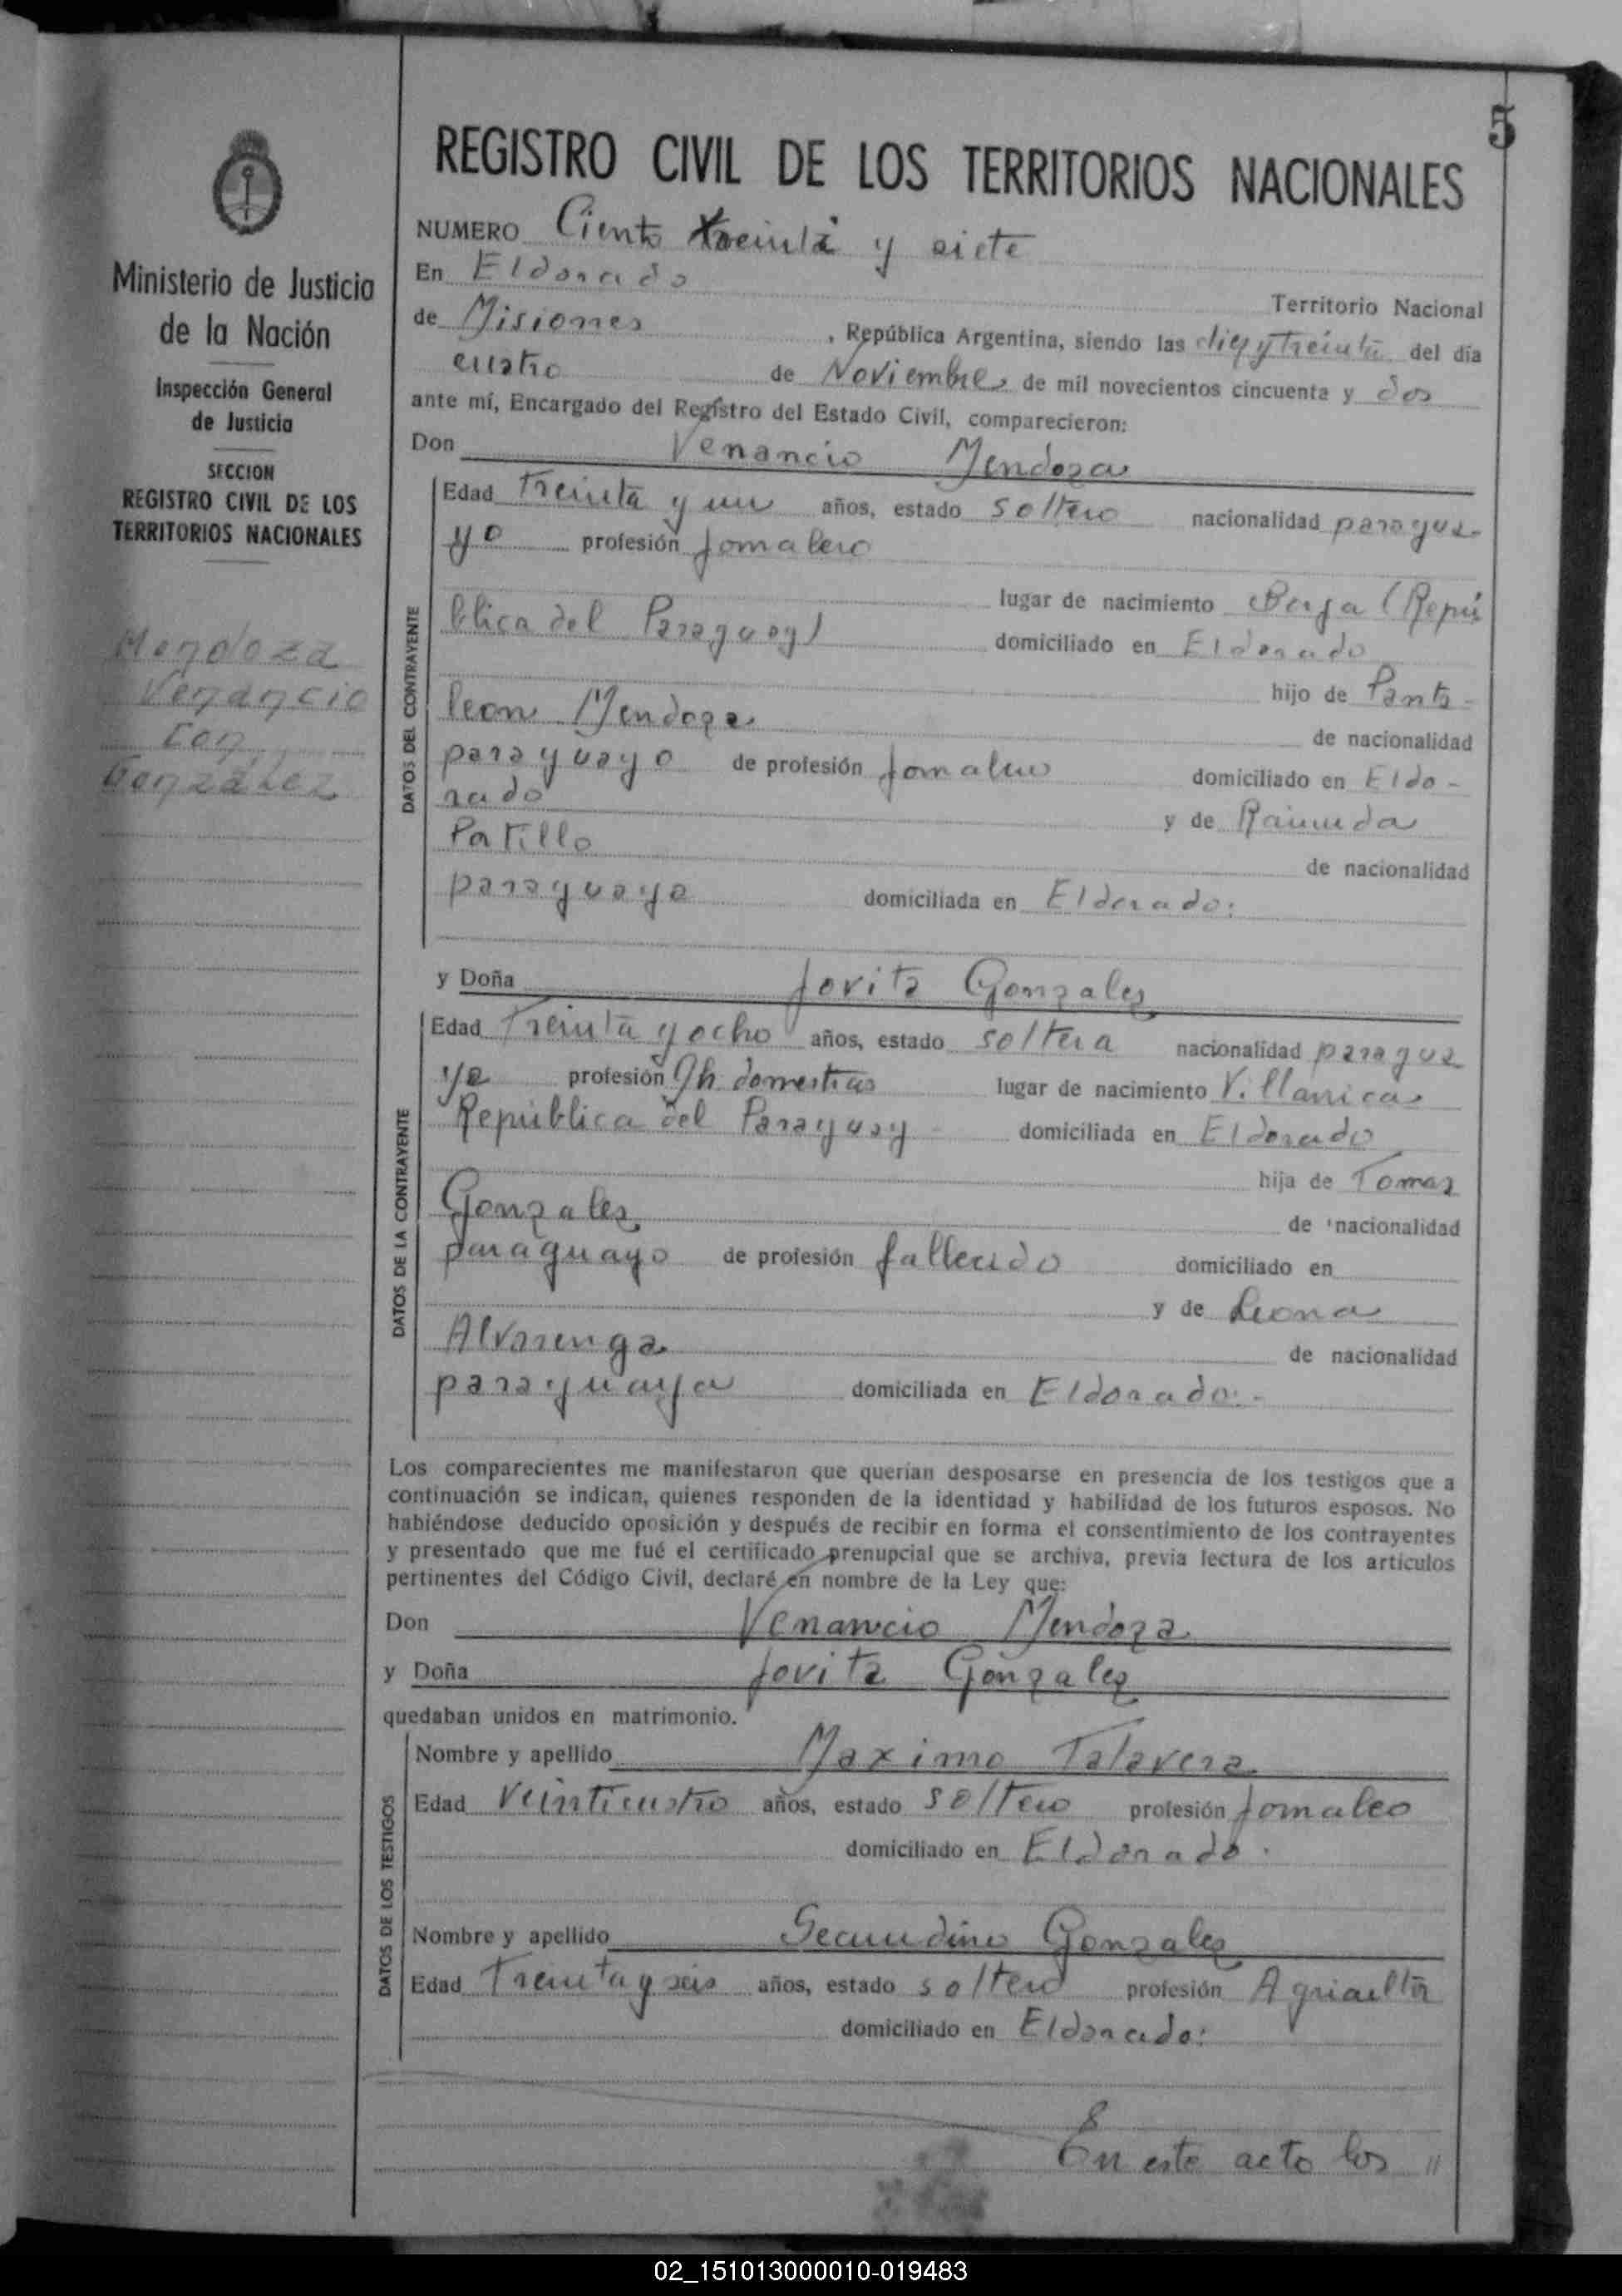 5
Ministerio de Justicia
de la Nación
Inspección General
de Justicia
SECCION
REGISTRO CIVIL DE LOS
TERRITORIOS NACIONALES
Mendoza
Venancio
con
Gonzalez
REGISTRO CIVIL DE LOS TERRITORIOS NACIONALES
NUMERO Ciento treinta y siete
En Eldorado
Territorio Nacional
de Misiones , República Argentina, siendo las diez y treinta del día
cuatro de Noviembre de mil novecientos cincuenta y dos
ante mí, Encargado del Registro del Estado Civil, comparecieron:
Don Venancio Mendoza
DATOS DEL CONTRAYENTE
Edad Treinta y un años, estado soltero nacionalidad paragua-
yo profesión jornalero
lugar de nacimiento Borja (Repú
blica del Paraguay) domiciliado en Eldorado
hijo de Panta-
leon Mendoza
de nacionalidad
paraguayo de profesión jornalero domiciliado en Eldo-
rado
y de Raimunda
Patillo
de nacionalidad
paraguaya domiciliada en Eldorado.
y Doña Jovita Gonzalez
DATOS DE LA CONTRAYENTE
Edad Treinta y ocho años, estado soltera nacionalidad paragua
ya profesión domesticas lugar de nacimiento Villarrica
República del Paraguay domiciliada en Eldorado
hija de Tomas
Gonzalez
de nacionalidad
paraguayo de profesión fallecido domiciliado en
y de Leona
Alvarenga
de nacionalidad
paraguaya domiciliada en Eldorado.-
Los comparecientes me manifestaron que querían desposarse en presencia de los testigos que a
continuación se indican, quienes responden de la identidad y habilidad de los futuros esposos. No
habiéndose deducido oposición y después de recibir en forma el consentimiento de los contrayentes
y presentado que me fué el certificado prenupcial que se archiva, previa lectura de los artículos
pertinentes del Código Civil, declaré en nombre de la Ley que:
Don Venancio Mendoza
y Doña Jovita Gonzalez
quedaban unidos en matrimonio.
DATOS DE LOS TESTIGOS
Nombre y apellido Maximo Talavera
Edad Veinticuatro años, estado soltero profesión jornaleo
domiciliado en Eldorado.
Nombre y apellido Secundino Gonzalez
Edad Treinta y seis años, estado soltero profesión Agricultor
domiciliado en Eldorado.
En este acto los "
02_151013000010-019483